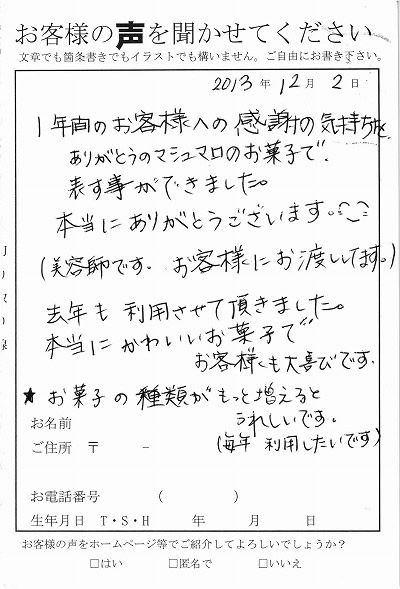 お客様の声を聞かせてください
文章でも箇条書きでもイラストでも構いません。ご自由にお書き下さい。
2013年 12月 2日
1年間のお客様への感謝の気持ちを、
ありがとうのマシュマロのお菓子で、
表す事ができました。
本当にありがとうございます。
(美容師です。お客様にお渡ししてます。)
去年も利用させて頂きました。
本当にかわいいお菓子で
お客様も大喜びです。
★お菓子の種類がもっと増えると
うれしいです。
(毎年 利用したいです)
お名前
ご住所 〒 -
お電話番号 ( )
生年月日 T・S・H 年 月 日
お客様の声をホームページ等でご紹介してよろしいでしょうか?
□はい □匿名で □いいえ